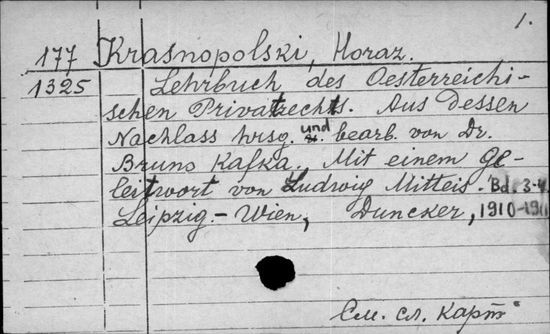 1.
177 Krasnopolski, Horaz.
1325 Lehrbuch des Oesterreichi-
schen Privatrechts. Aus dessen
Nachlass hrsg. und bearb. von Dr.
Bruno Kafka. Mit einem Ge-
leitwort von Ludwig Mitteis. Bd. 3-4
Leipzig-Wien, Duncker, 1910-
См. сл. карт